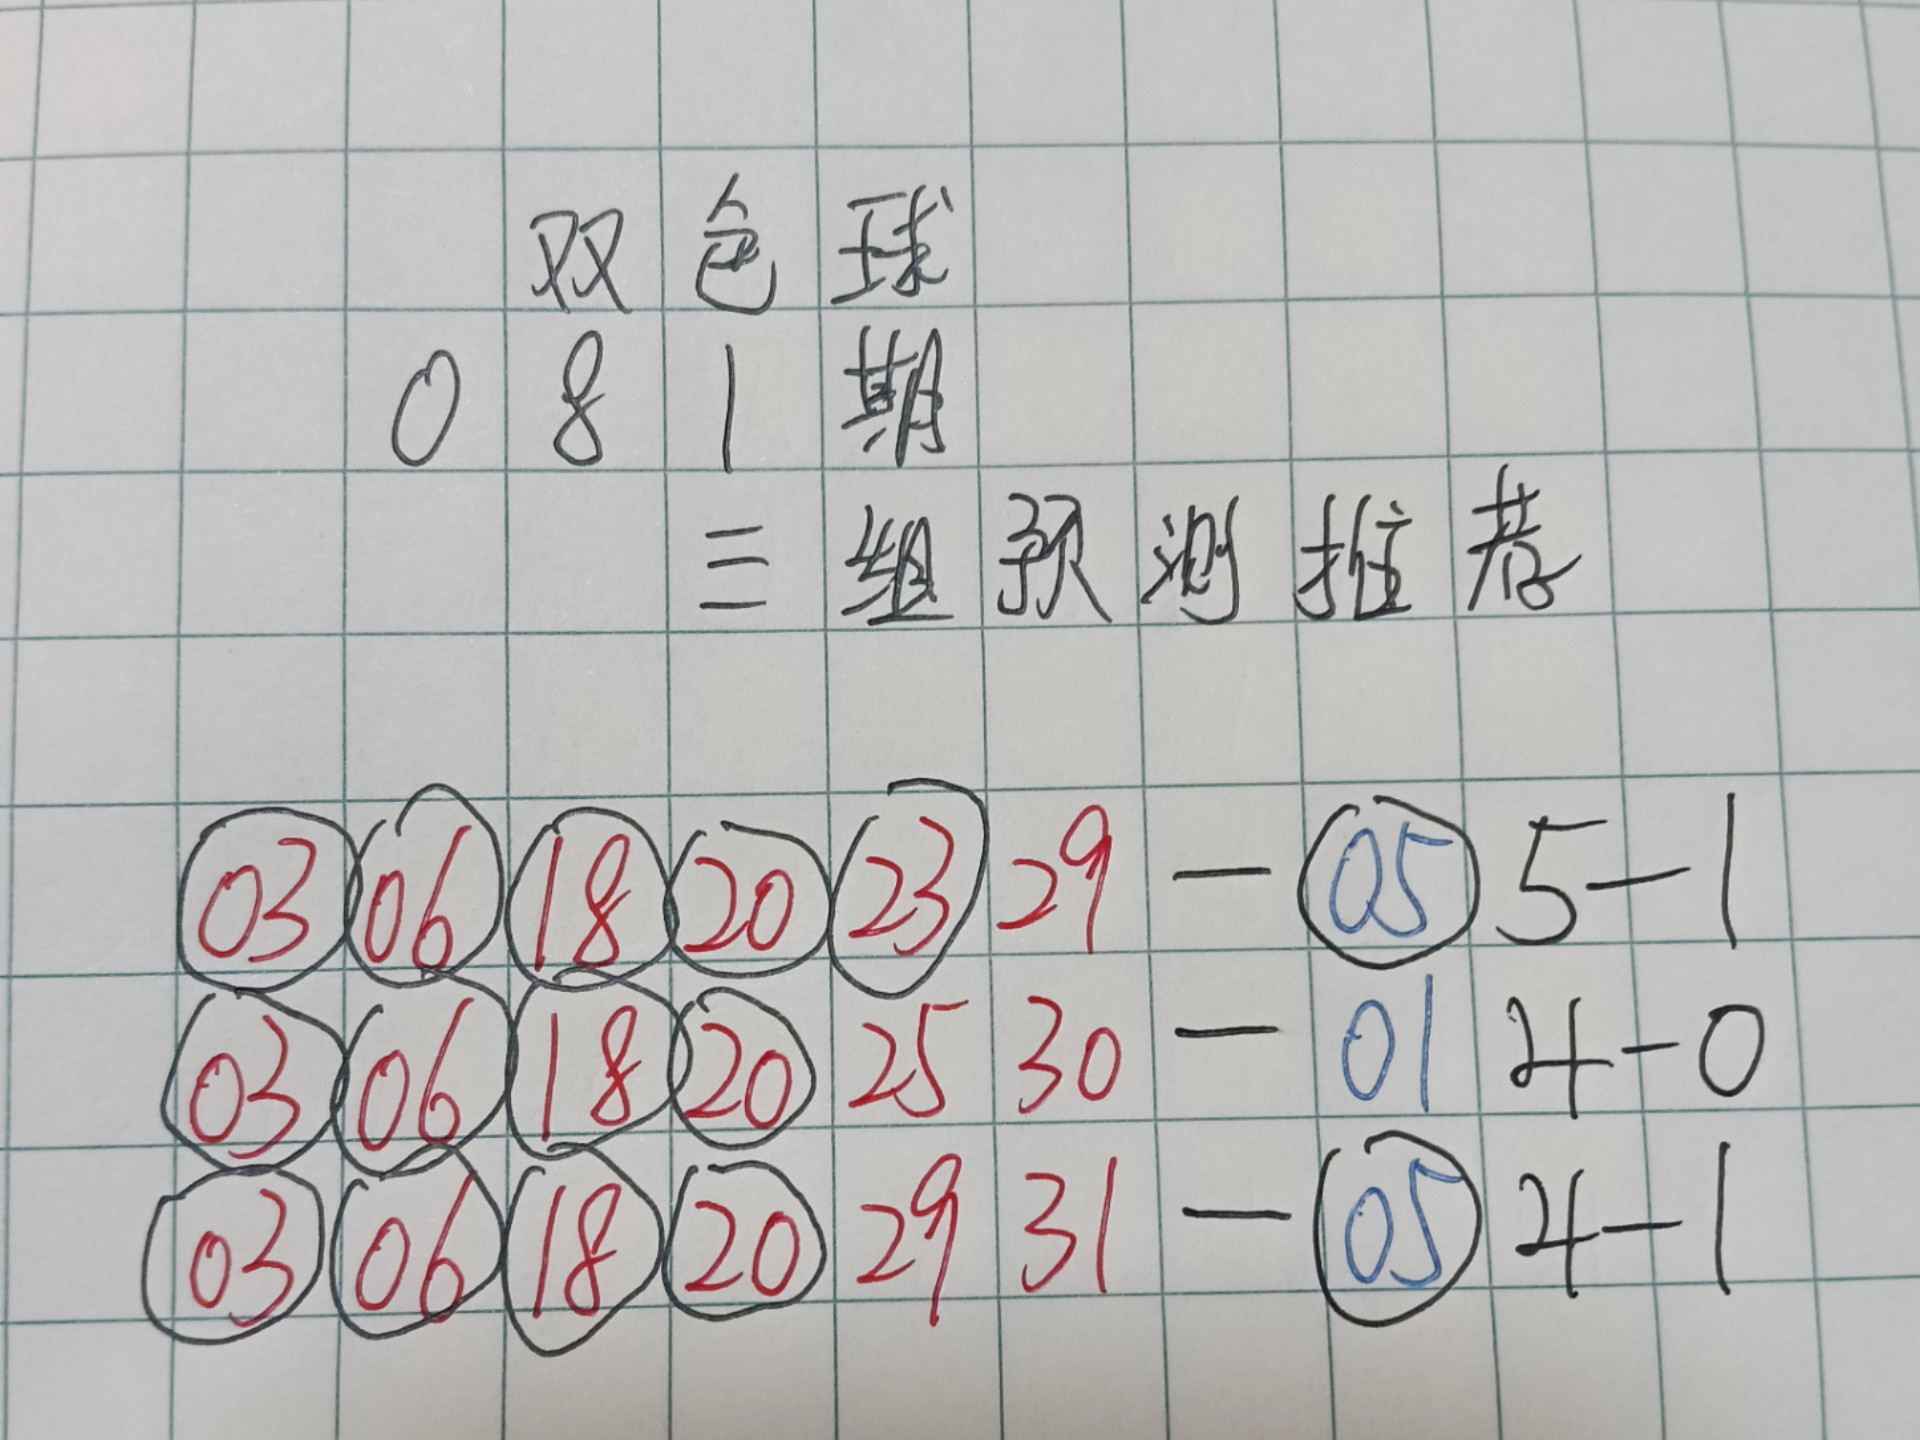 双色球
081期
三组预测推荐
03 06 18 20 23 29 — 05 5-1
03 06 18 20 25 30 — 01 4-0
03 06 18 20 29 31 — 05 4-1